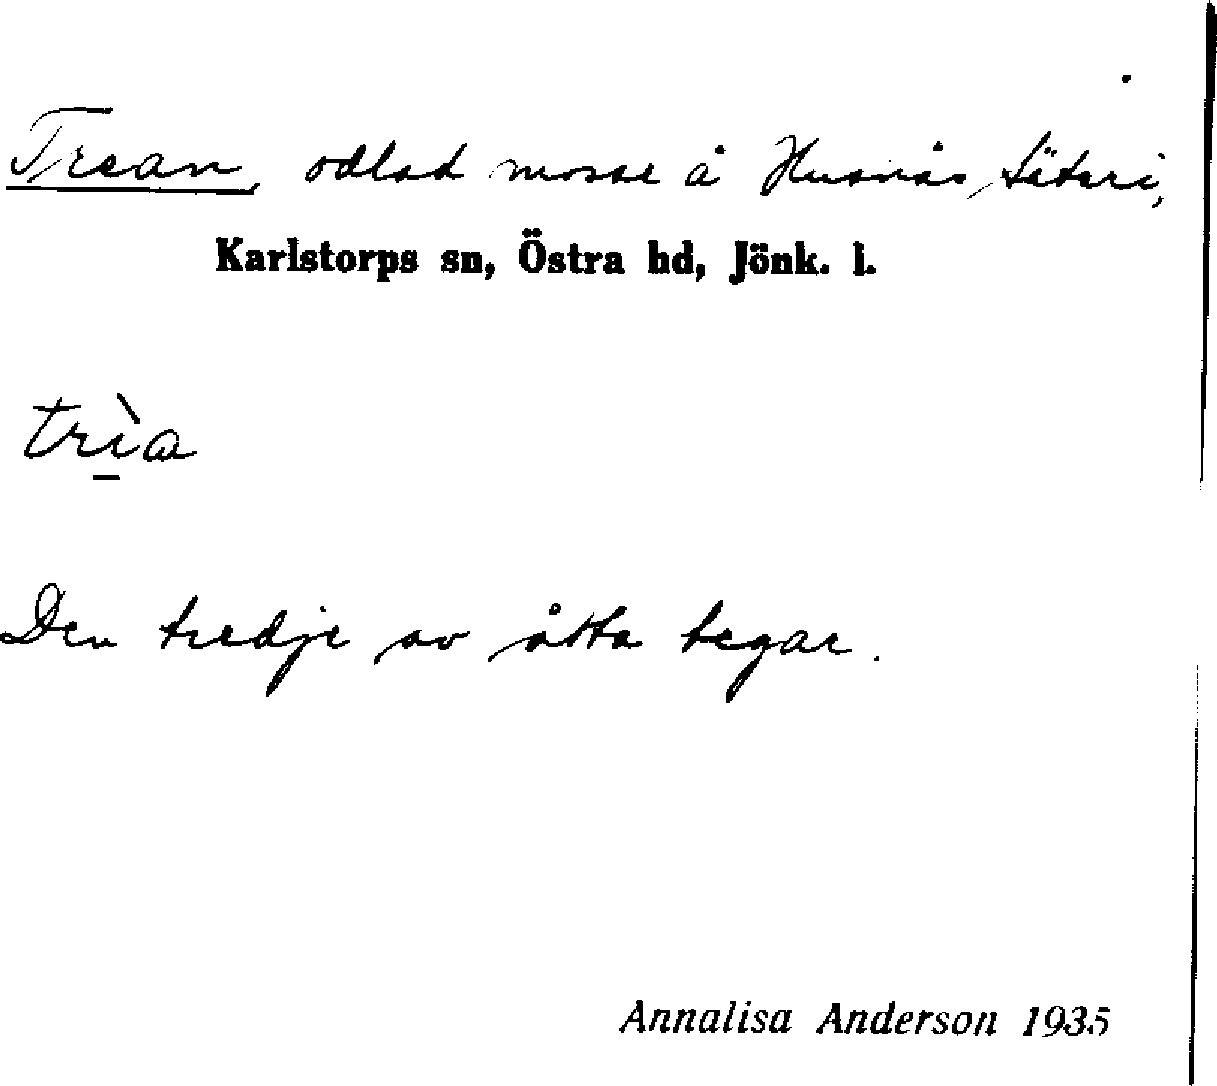 Trean, odlad mosse å Husnäs, säteri,
Karlstorps sn, Östra hd, Jönk. l.
trìa
Den tredje av åtta tegar.
Annalisa Anderson 1935